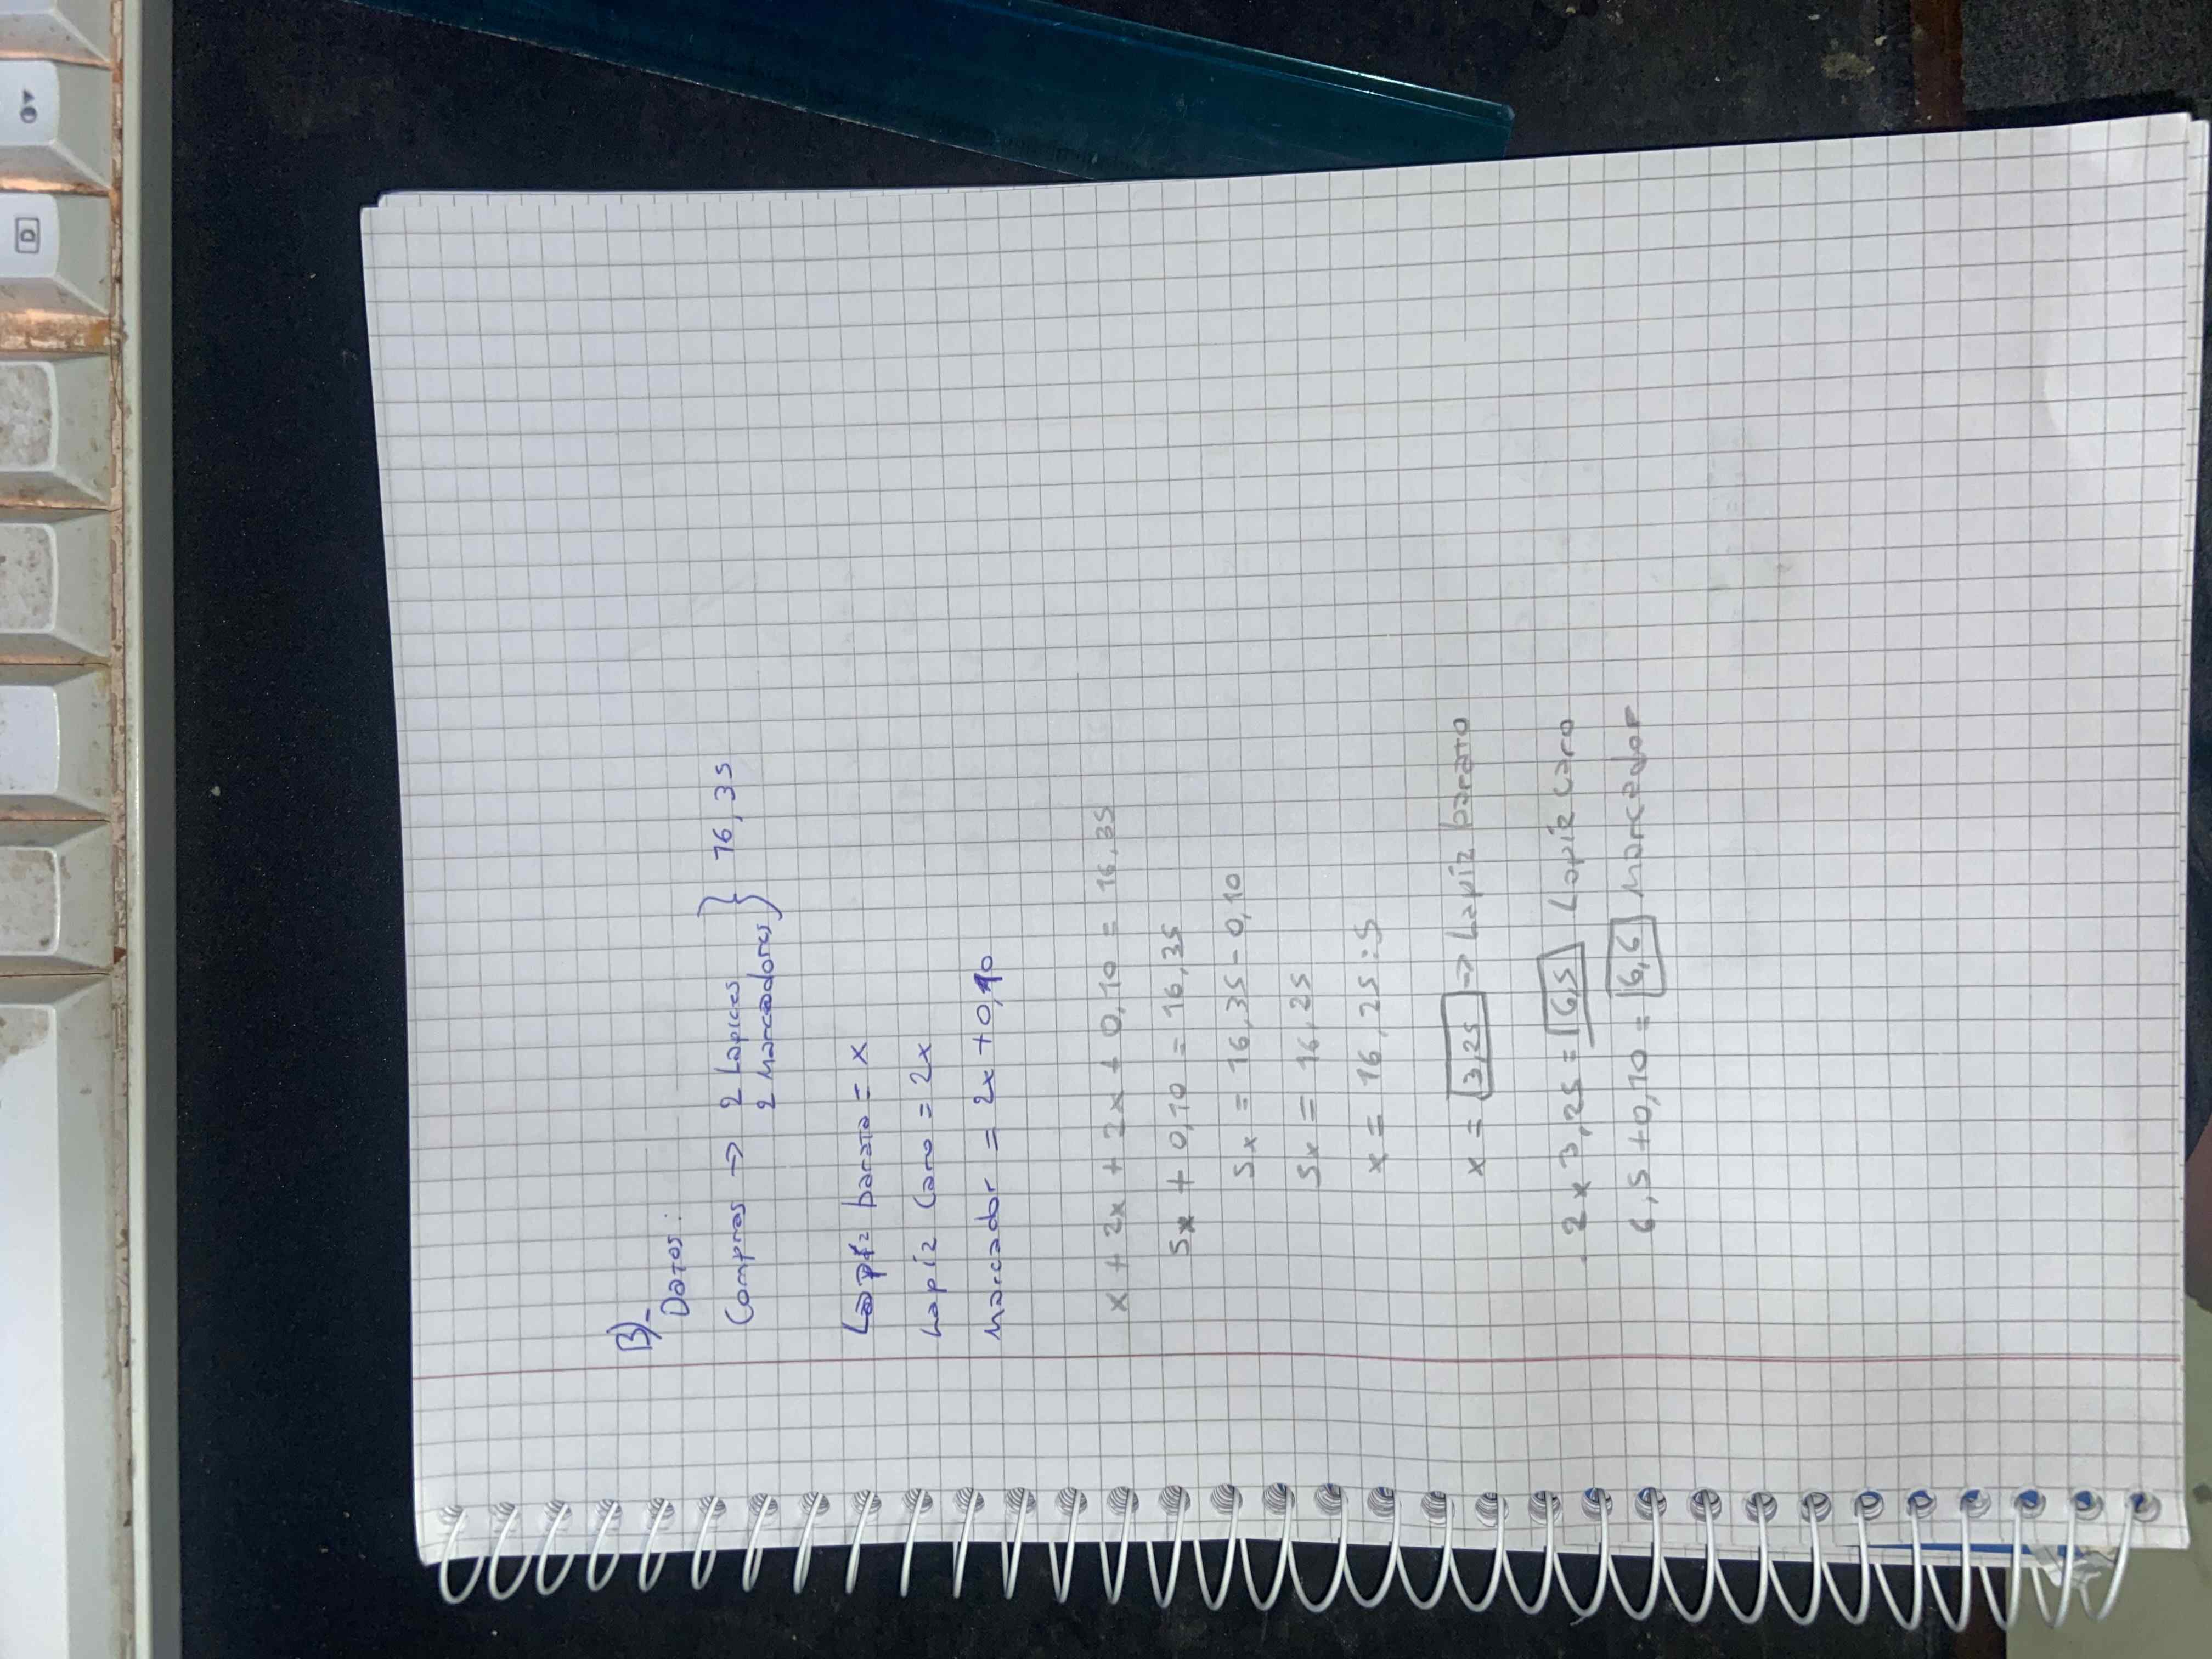 B)-
Datos:
Compras → 2 Lapices
2 Marcadores } 16,35
Lapiz barato = x
Lapiz Caro = 2x
Marcador = 2x + 0,10
x + 2x + 2x + 0,10 = 16,35
5x + 0,10 = 16,35
5x = 16,35 - 0,10
5x = 16,25
x = 16,25 : 5
x = 3,25 → Lapiz barato
2 x 3,25 = 6,5 Lapiz Caro
6,5 + 0,10 = 6,6 Marcador
D